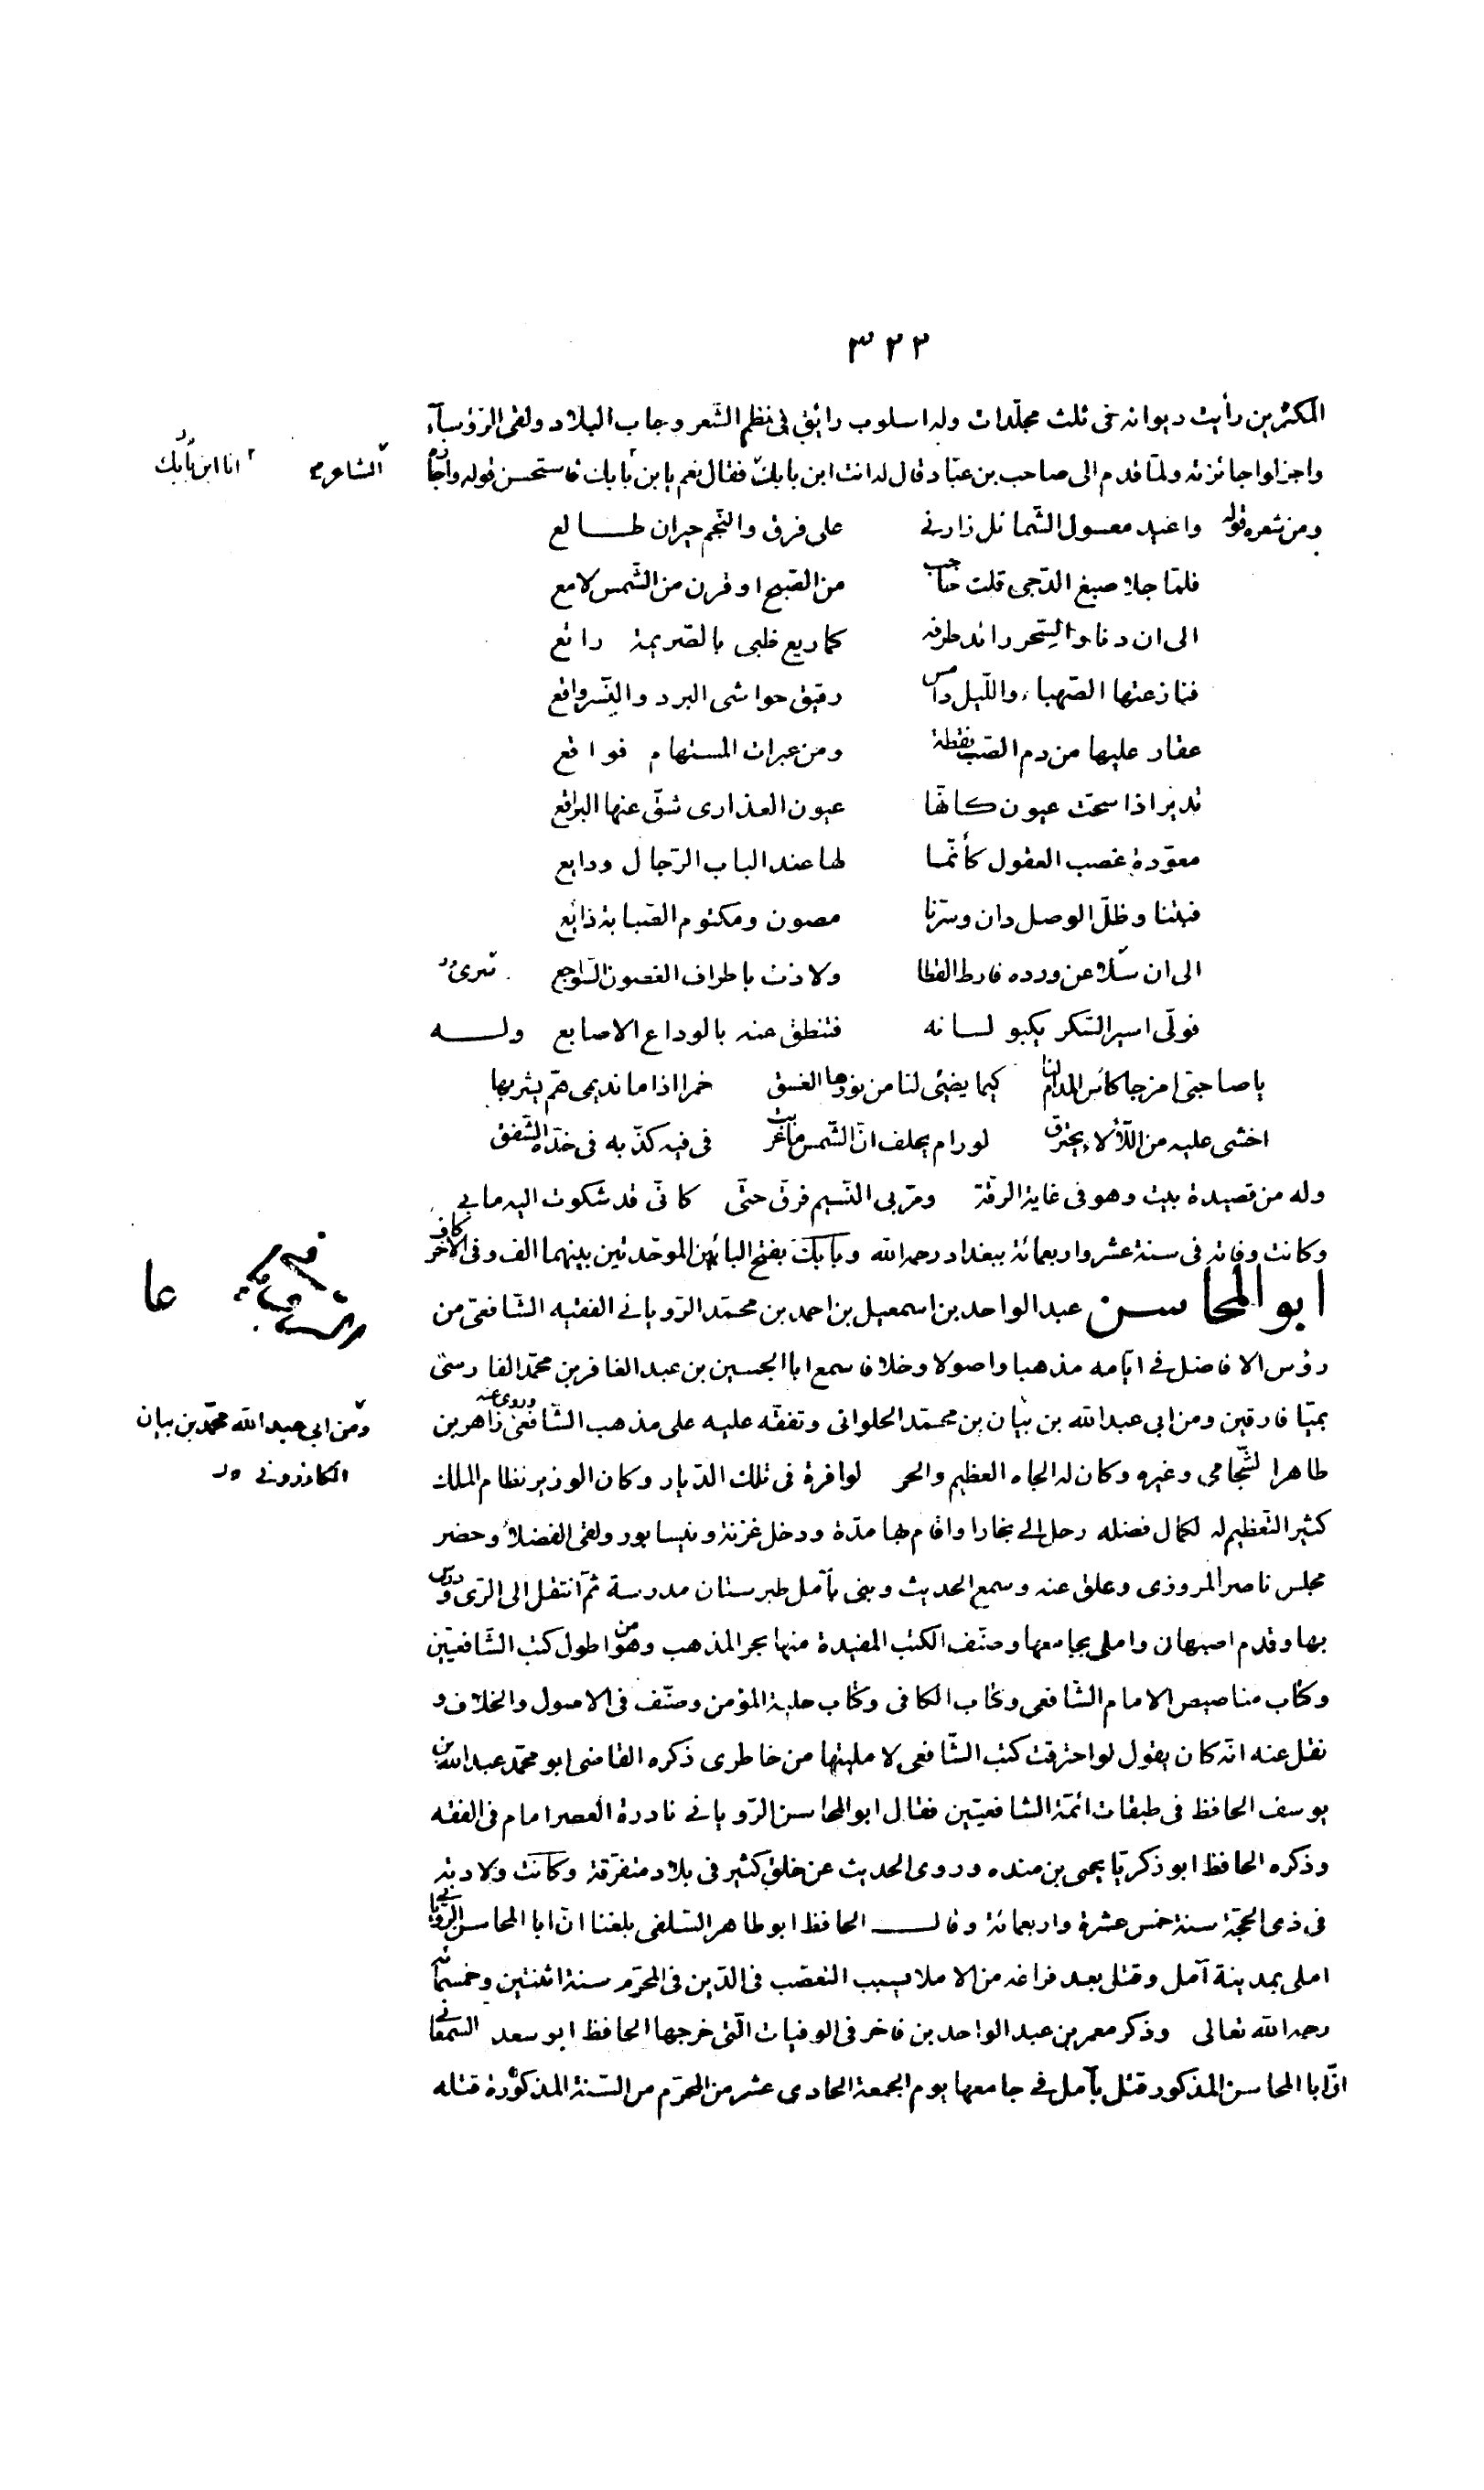 ٣٢٣
المكثرين رأيت ديوانه فى ثلث مجلّدات وله اسلوب رائق فى نظم الشّعر وجاب البلاد ولقى الرّؤسآء
واجزلوا جائزته ولمّا قدم الى صاحب بن عبّاد قال له انت ابن بابك فقال نعم يا بن بابك فاستحسن قوله واجازه
الشاعر م
انا ابن بابك
ومن شعره قوله واغيد معسول الشّمائل زارنے على فرق والنّجم حيران طالع
فلمّا جلا صبغ الدّجى قلت حاجب من الصّبح او قرن من الشّمس لامع
الى ان دنا والسّحر رائد طرفه كما ريع ظبى بالصّريمة رائع
فنازعتها الصّهباء واللّيل دامس رقيق حواشى البرد والنّسر واقع
عقار عليها من دم الصّب نقطة ومن عبرات المستهام فواقع
تدير اذا سحّت عيون كانّها عيون العذارى شقّ عنها البراقع
معوّدة غصب العقول كأنّما لها عند الباب الرّجال ودايع
فبتنا وظلّ الوصل دان وسرّنا مصون ومكتوم الصّبابة ذائع
الى ان سلا عن ورده فارط القطا ولاذت باطراف الغصون السّواجع
فولّى اسير السّكر يكبو لسانه فتنطق عنه بالوداع الاصابع وله
يا صاحبىّ امزجا كاس المدام لنا كيما يضيئ لنا من نورها الغسق خمرا اذا ما نديمى همّ يشربها
اخشى عليه من اللّألاء يحترق لو رام يحلف انّ الشّمس ما غربت فى فيه كذّبه فى خدّه الشّفق
وله من قصيدة بيت وهو فى غاية الرقّة ومرّ بى النّسيم فرقّ حتّى كانّى قد شكوت اليه ما بى
وكانت وفاته فى سنة عشر واربعمائة ببغداد رحمه الله وبابك بفتح البائين الموحّدتين بينهما الف وفى الاخر كاف
ابو المحاسن عبد الواحد بن اسمعيل بن احمد بن محمّد الرّويانے الفقيه الشّافعىّ من
رؤس الافاضل فے ايّامه مذهبا واصولا وخلافا سمع ابا الحسين بن عبد الغافر بن محمّد الفارسىّ
بميّافارقين ومن ابى عبد الله بن بيان بن محمّد الحلوانى وتفقّه عليه على مذهب الشّافعىّ وروى عنه زاهر بن
ومن ابى عبد الله محمّد بن بيان
الكازرونى
طاهر الشّحّامى وغيره وكان له الجاه العظيم والحر لوافرة فى تلك الدّيار وكان الوزير نظام الملك
كثير التّعظيم له لكمال فضله رحل الى بخارا واقام بها مدّة ودخل غزنة ونيسابور ولقى الفضلاء وحضر
مجلس ناصر المروزى وعلق عنه وسمع الحديث وبنى بآمل طبرستان مدرسة ثمّ انتقل الى الرّى ودرس
بها وقدم اصبهان واملى بجامعها وصنّف الكتب المفيدة منها بحر المذهب وهو من اطول كتب الشّافعيّين
وكتاب مناصيص الامام الشّافعى وكتاب الكافى وكتاب حلية المؤمن وصنّف فى الاصول والخلاف و
نقل عنه انّه كان يقول لو احترقت كتب الشّافعى لامليتها من خاطرى ذكره القاضى ابو محمّد عبد الله بن
يوسف الحافظ فى طبقات ائمّة الشافعيّين فقال ابو المحاسن الرّويانے نادرة العصر امام فى الفقه
وذكره الحافظ ابو زكريّا يحيى بن منده وروى الحديث عن خلق كثير فى بلاد متفرّقة وكانت ولادته
فى ذى الحجّة سنة خمس عشرة واربعمائة وقال الحافظ ابو طاهر السّلفى بلغنا انّ ابا المحاسن الرّويانے
املى بمدينة آمل وقتل بعد فراغه من الاملا بسبب التعصّب فى الدّين فى المحرّم سنة اثنتين وخمسمائه
رحمه الله تعالى وذكر معمر بن عبد الواحد بن فاخر فى الوفيات الّتى خرجها الحافظ ابو سعد السمعانے
انّ ابا المحاسن المذكور قتل بآمل فے جامعها يوم الجمعة الحادى عشر من المحرّم من السّنة المذكورة قتله